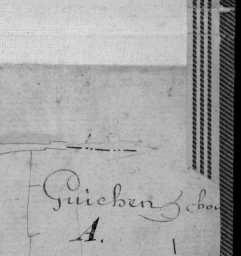 Guichen
A.